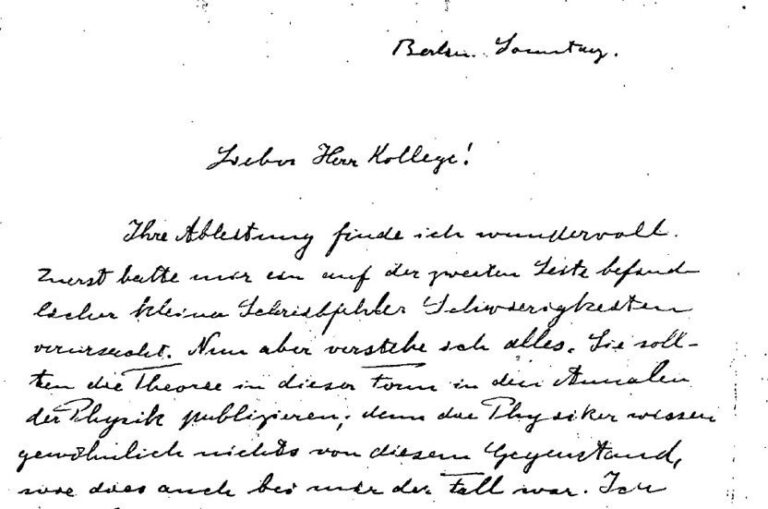 Berlin. Sonntag.
Lieber Herr Kollege!
Ihre Ableitung finde ich wundervoll.
Zuerst hatte mir ein auf der zweiten Seite befind-
licher kleiner Schreibfehler Schwierigkeiten
verursacht. Nun aber verstehe ich alles. Sie soll-
ten die Theorie in dieser Form in den Annalen
der Physik publizieren; denn die Physiker wissen
gewöhnlich nichts von diesem Gegenstand,
wie dies auch bei mir der Fall war. Ich